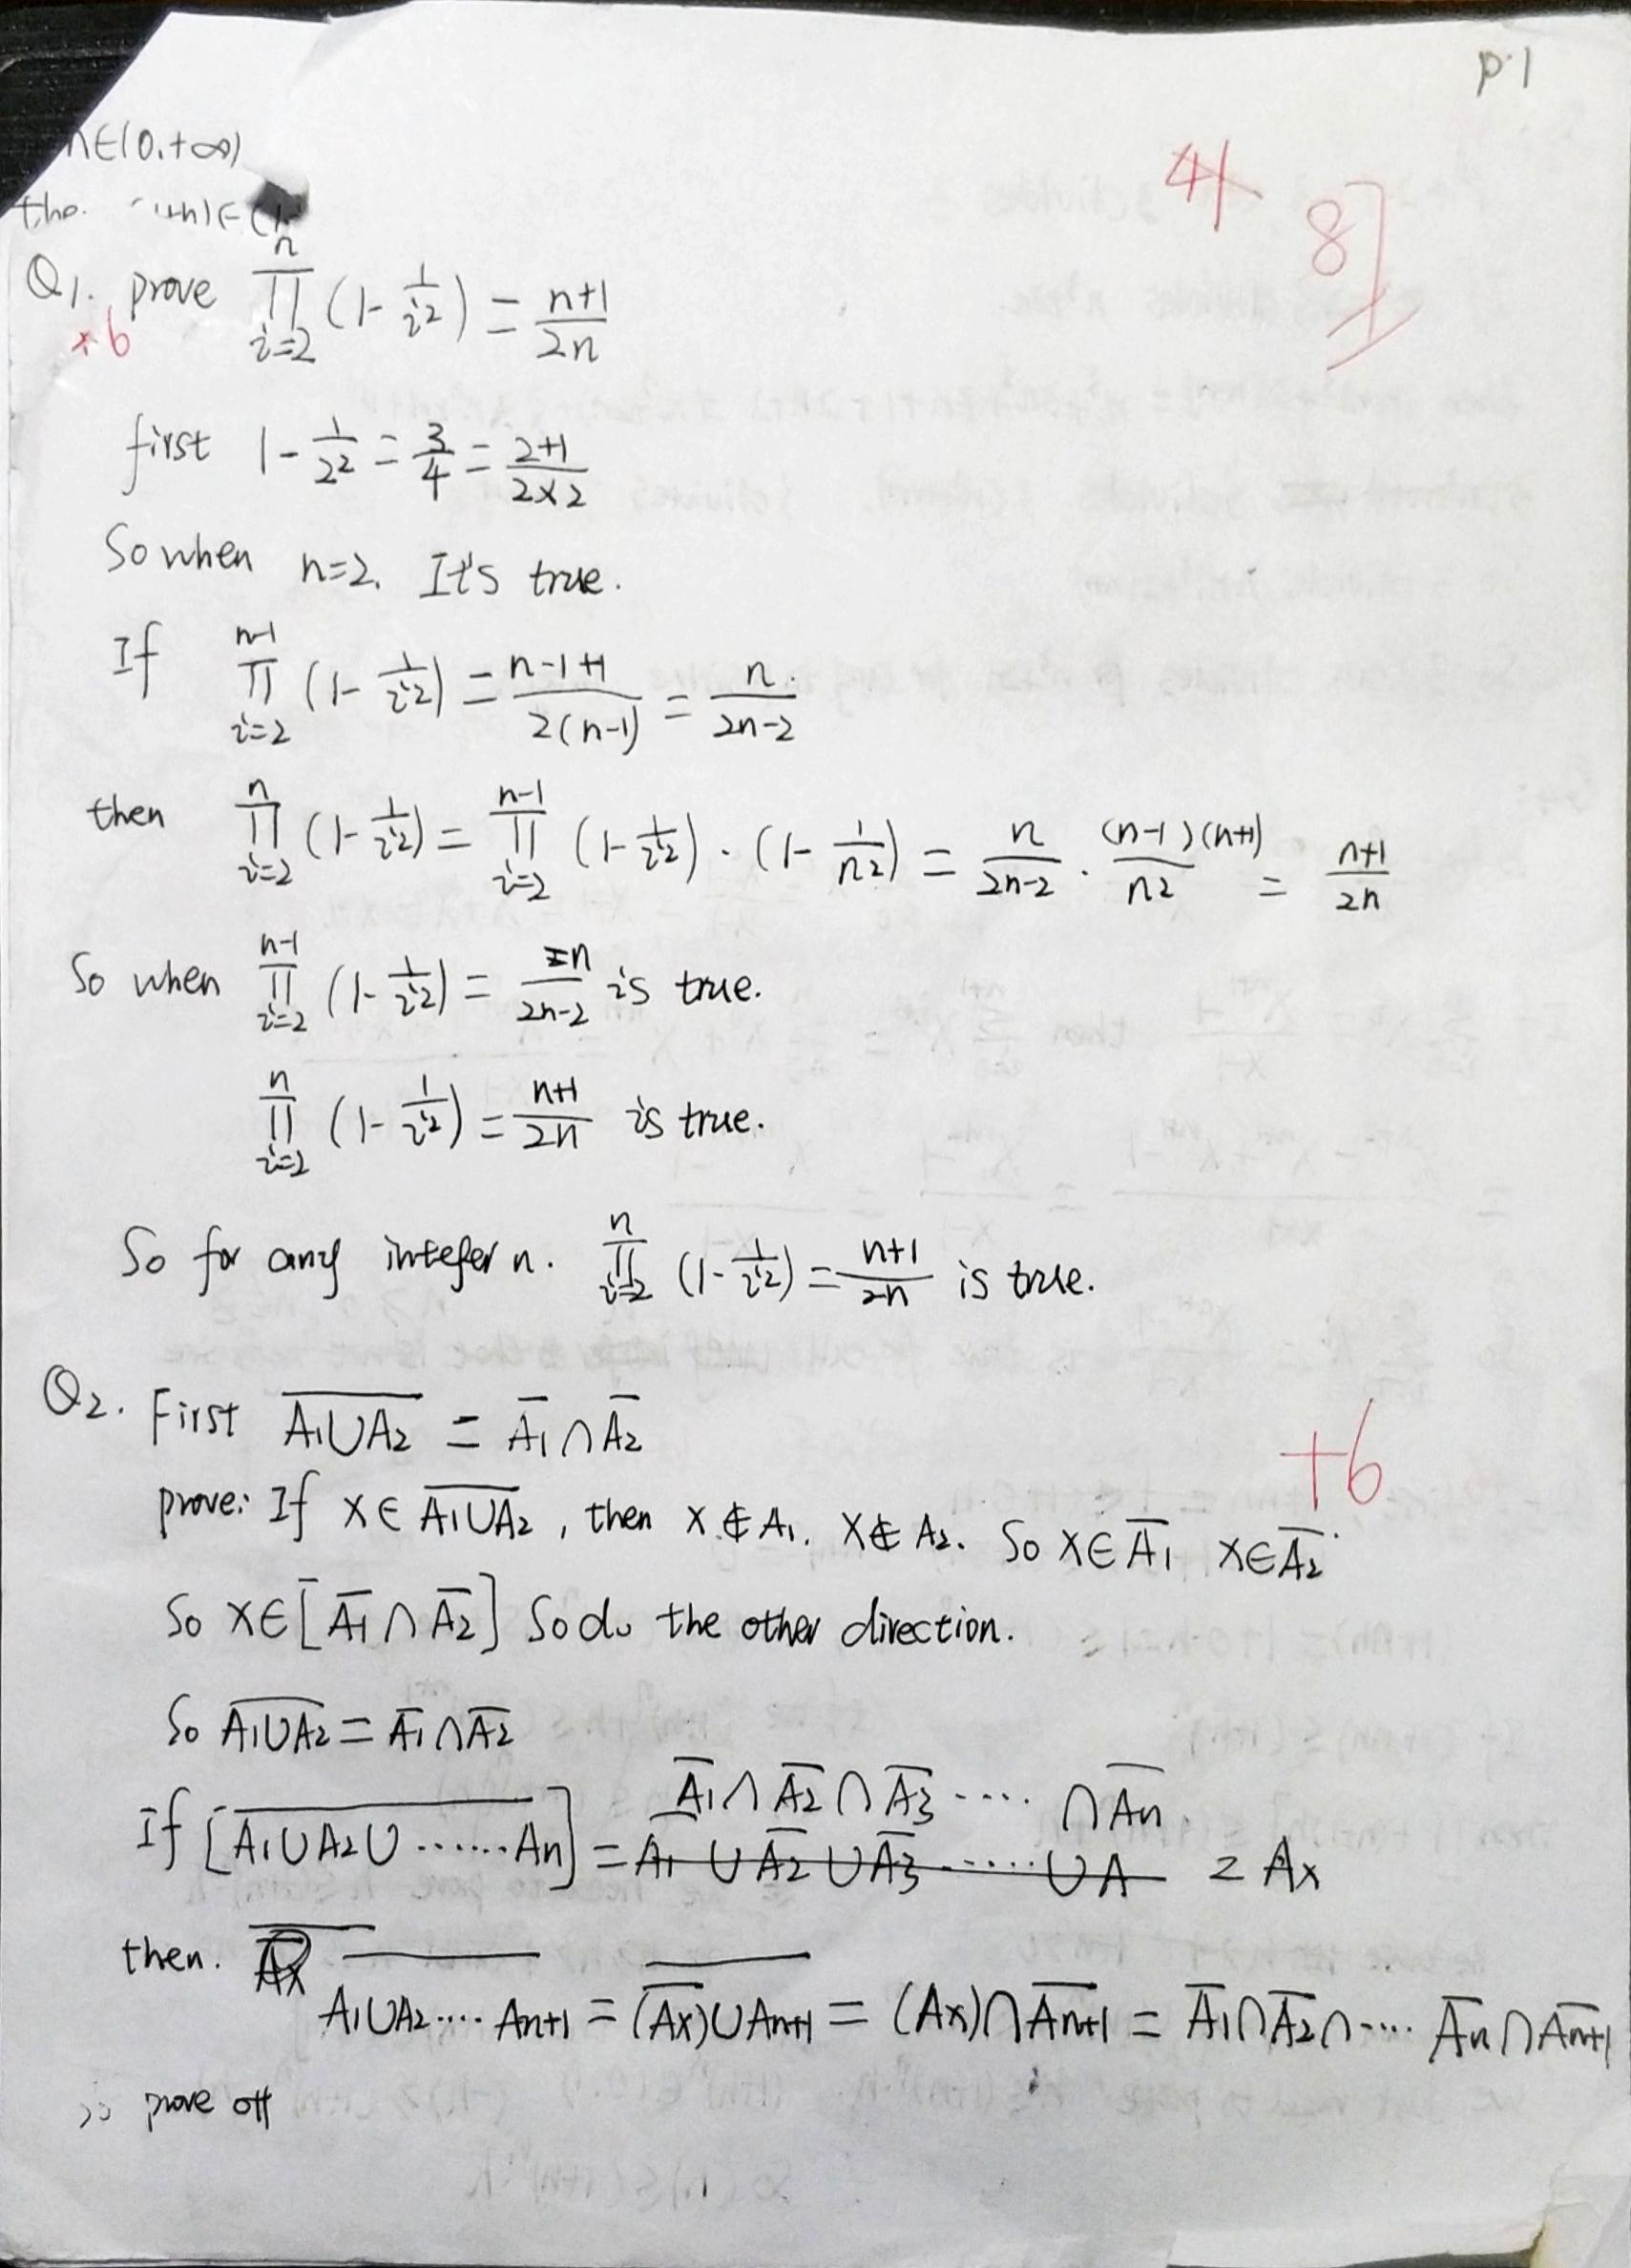 p.1
n∈(0,+∞)
the
41
8]
Q1. prove ∏_{i=2}^{n} (1 - 1/i²) = (n+1)/2n
+6
first 1 - 1/2² = 3/4 = (2+1)/(2×2)
So when n=2. It's true.
If ∏_{i=2}^{n-1} (1 - 1/i²) = (n-1+1)/(2(n-1)) = n/(2n-2)
then ∏_{i=2}^{n} (1 - 1/i²) = ∏_{i=2}^{n-1} (1 - 1/i²) · (1 - 1/n²) = n/(2n-2) · (n-1)(n+1)/n² = (n+1)/2n
So when ∏_{i=2}^{n-1} (1 - 1/i²) = n/(2n-2) is true.
∏_{i=2}^{n} (1 - 1/i²) = (n+1)/2n is true.
So for any integer n. ∏_{i=2}^{n} (1 - 1/i²) = (n+1)/2n is true.
Q2. First \overline{A₁∪A₂} = \overline{A₁}∩\overline{A₂}
+6
prove: If x∈\overline{A₁∪A₂}, then x∉A₁. x∉A₂. So x∈\overline{A₁} x∈\overline{A₂}
So x∈[\overline{A₁}∩\overline{A₂}] So do the other direction.
So \overline{A₁∪A₂} = \overline{A₁}∩\overline{A₂}
\overline{A₁}∩\overline{A₂}∩\overline{A₃}....∩\overline{An}
If [\overline{A₁∪A₂∪......An}] = \overline{A₁}∪\overline{A₂}∪\overline{A₃}......∪A = Ax
then. \overline{Ax}
\overline{A₁∪A₂....An+1} = \overline{(\overline{Ax})∪An+1} = (Ax)∩\overline{An+1} = \overline{A₁}∩\overline{A₂}∩....\overline{An}∩\overline{An+1}
prove off